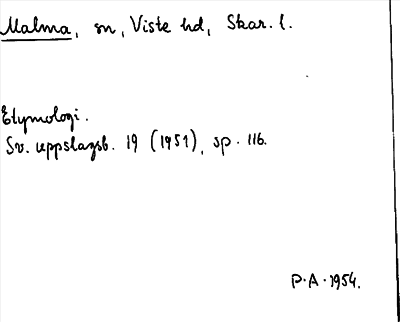 Malma, sn, Viste hd, Skar. l.
Etymologi.
Sv. uppslagsb. 19 (1951), sp. 116.
P.A. 1954.